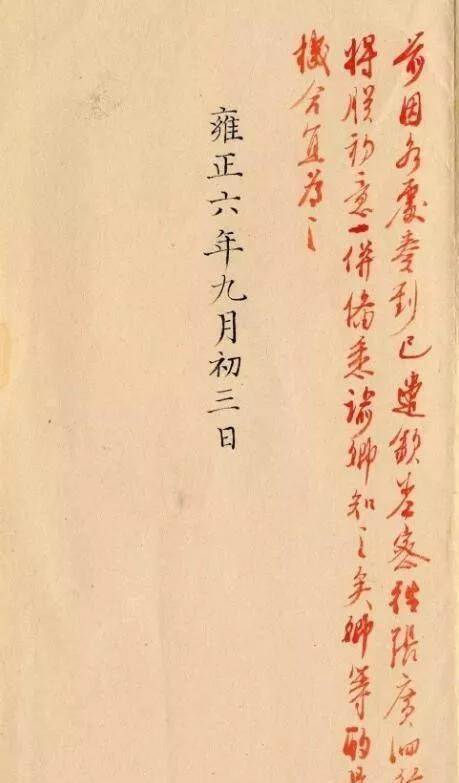 前因各處奏到已遣欽差密往張廣泗
將朕初意一併備悉諭卿知之矣卿等酌
機合宜為之
雍正六年九月初三日